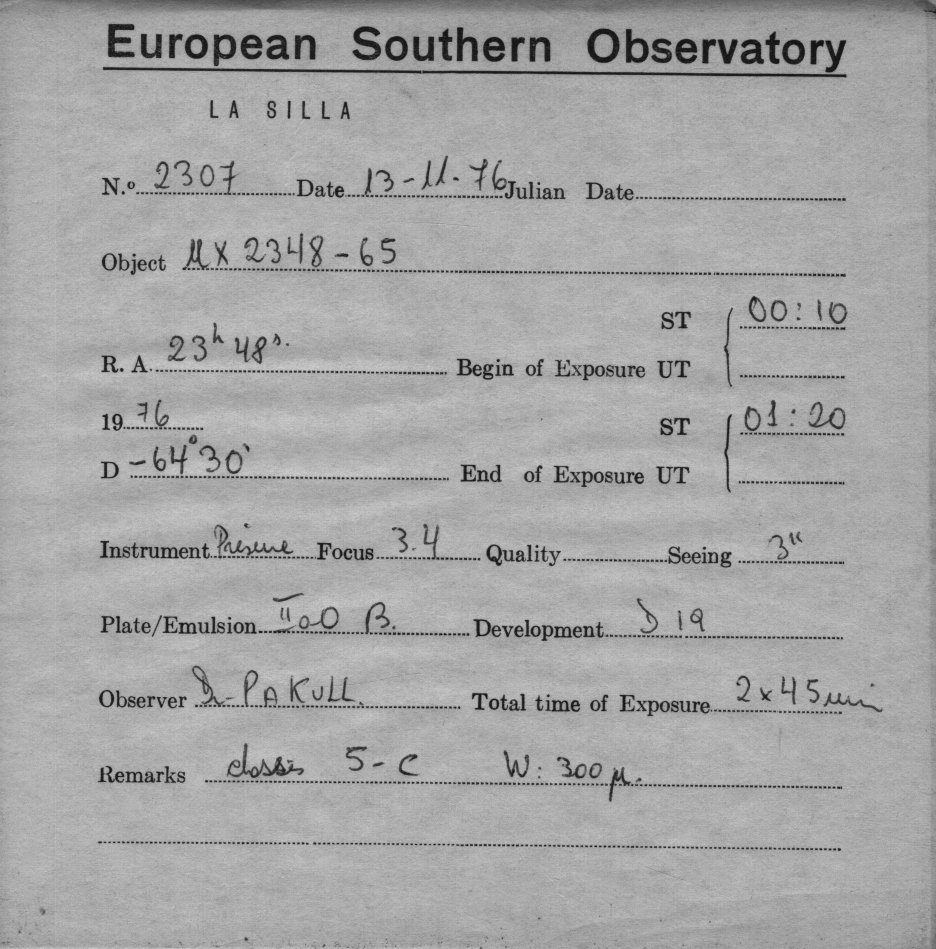 European Southern Observatory
LA SILLA
N.º 2307 Date 13-11-76 Julian Date
Object MX 2348-65
ST 00:10
R. A. 23h 48s. Begin of Exposure UT
1976 ST 01:20
D -64°30' End of Exposure UT
Instrument Prisme Focus 3.4 Quality Seeing 3"
Plate/Emulsion IIaO B. Development D 19
Observer Dr PAKULL. Total time of Exposure 2x45min
Remarks chassis 5-C W: 300 μ.